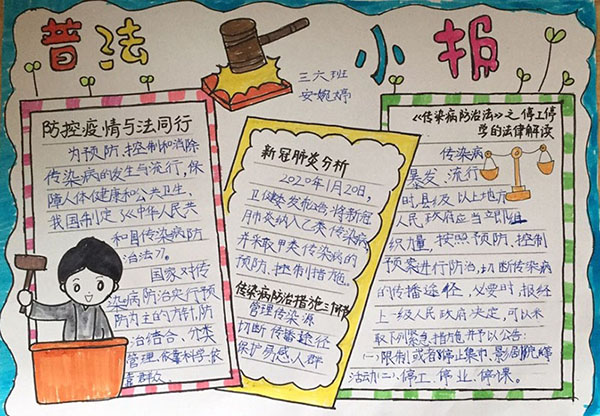 普法
小报
三六班
安婉婷
防控疫情与法同行
为预防、控制和消除
传染病的发生与流行,保
障人体健康和公共卫生,
我国制定《《中华人民共
和国传染病防
治法》。
国家对传
染病防治实行预
防为主的方针,防
治结合、分类
管理、依靠科学、依
靠群众
新冠肺炎分析
2020年1月20日,
卫健委发布公告:将新冠
肺炎纳入乙类传染病
并采取甲类传染病的
预防、控制措施。
传染病防治措施三个环节
管理传染源
切断传播途径
保护易感人群
《传染病防治法》之停工停
学的法律解读
传染病
暴发、流行
时,县级以上地方
人民政府应当立即组
织力量,按照预防、控制
预案进行防治,切断传染病
的传播途径,必要时,报经
上一级人民政府决定,可以采
取下列紧急措施并予以公告:
(一)限制或者停止集市、影剧院等
活动(二)停工、停业、停课。